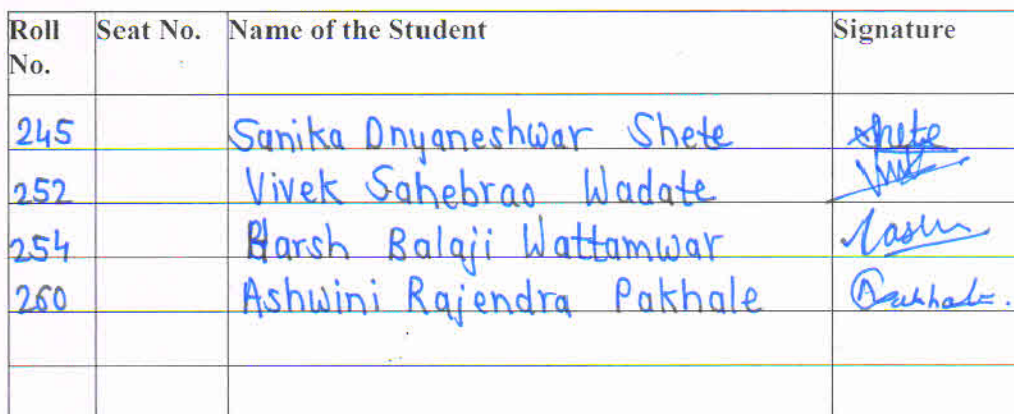 Roll No. Seat No. Name of the Student Signature
245 Sanika Dnyaneshwar Shete Shete
252 Vivek Sahebrao Wadate
254 Harsh Balaji Wattamwar
260 Ashwini Rajendra Pakhale